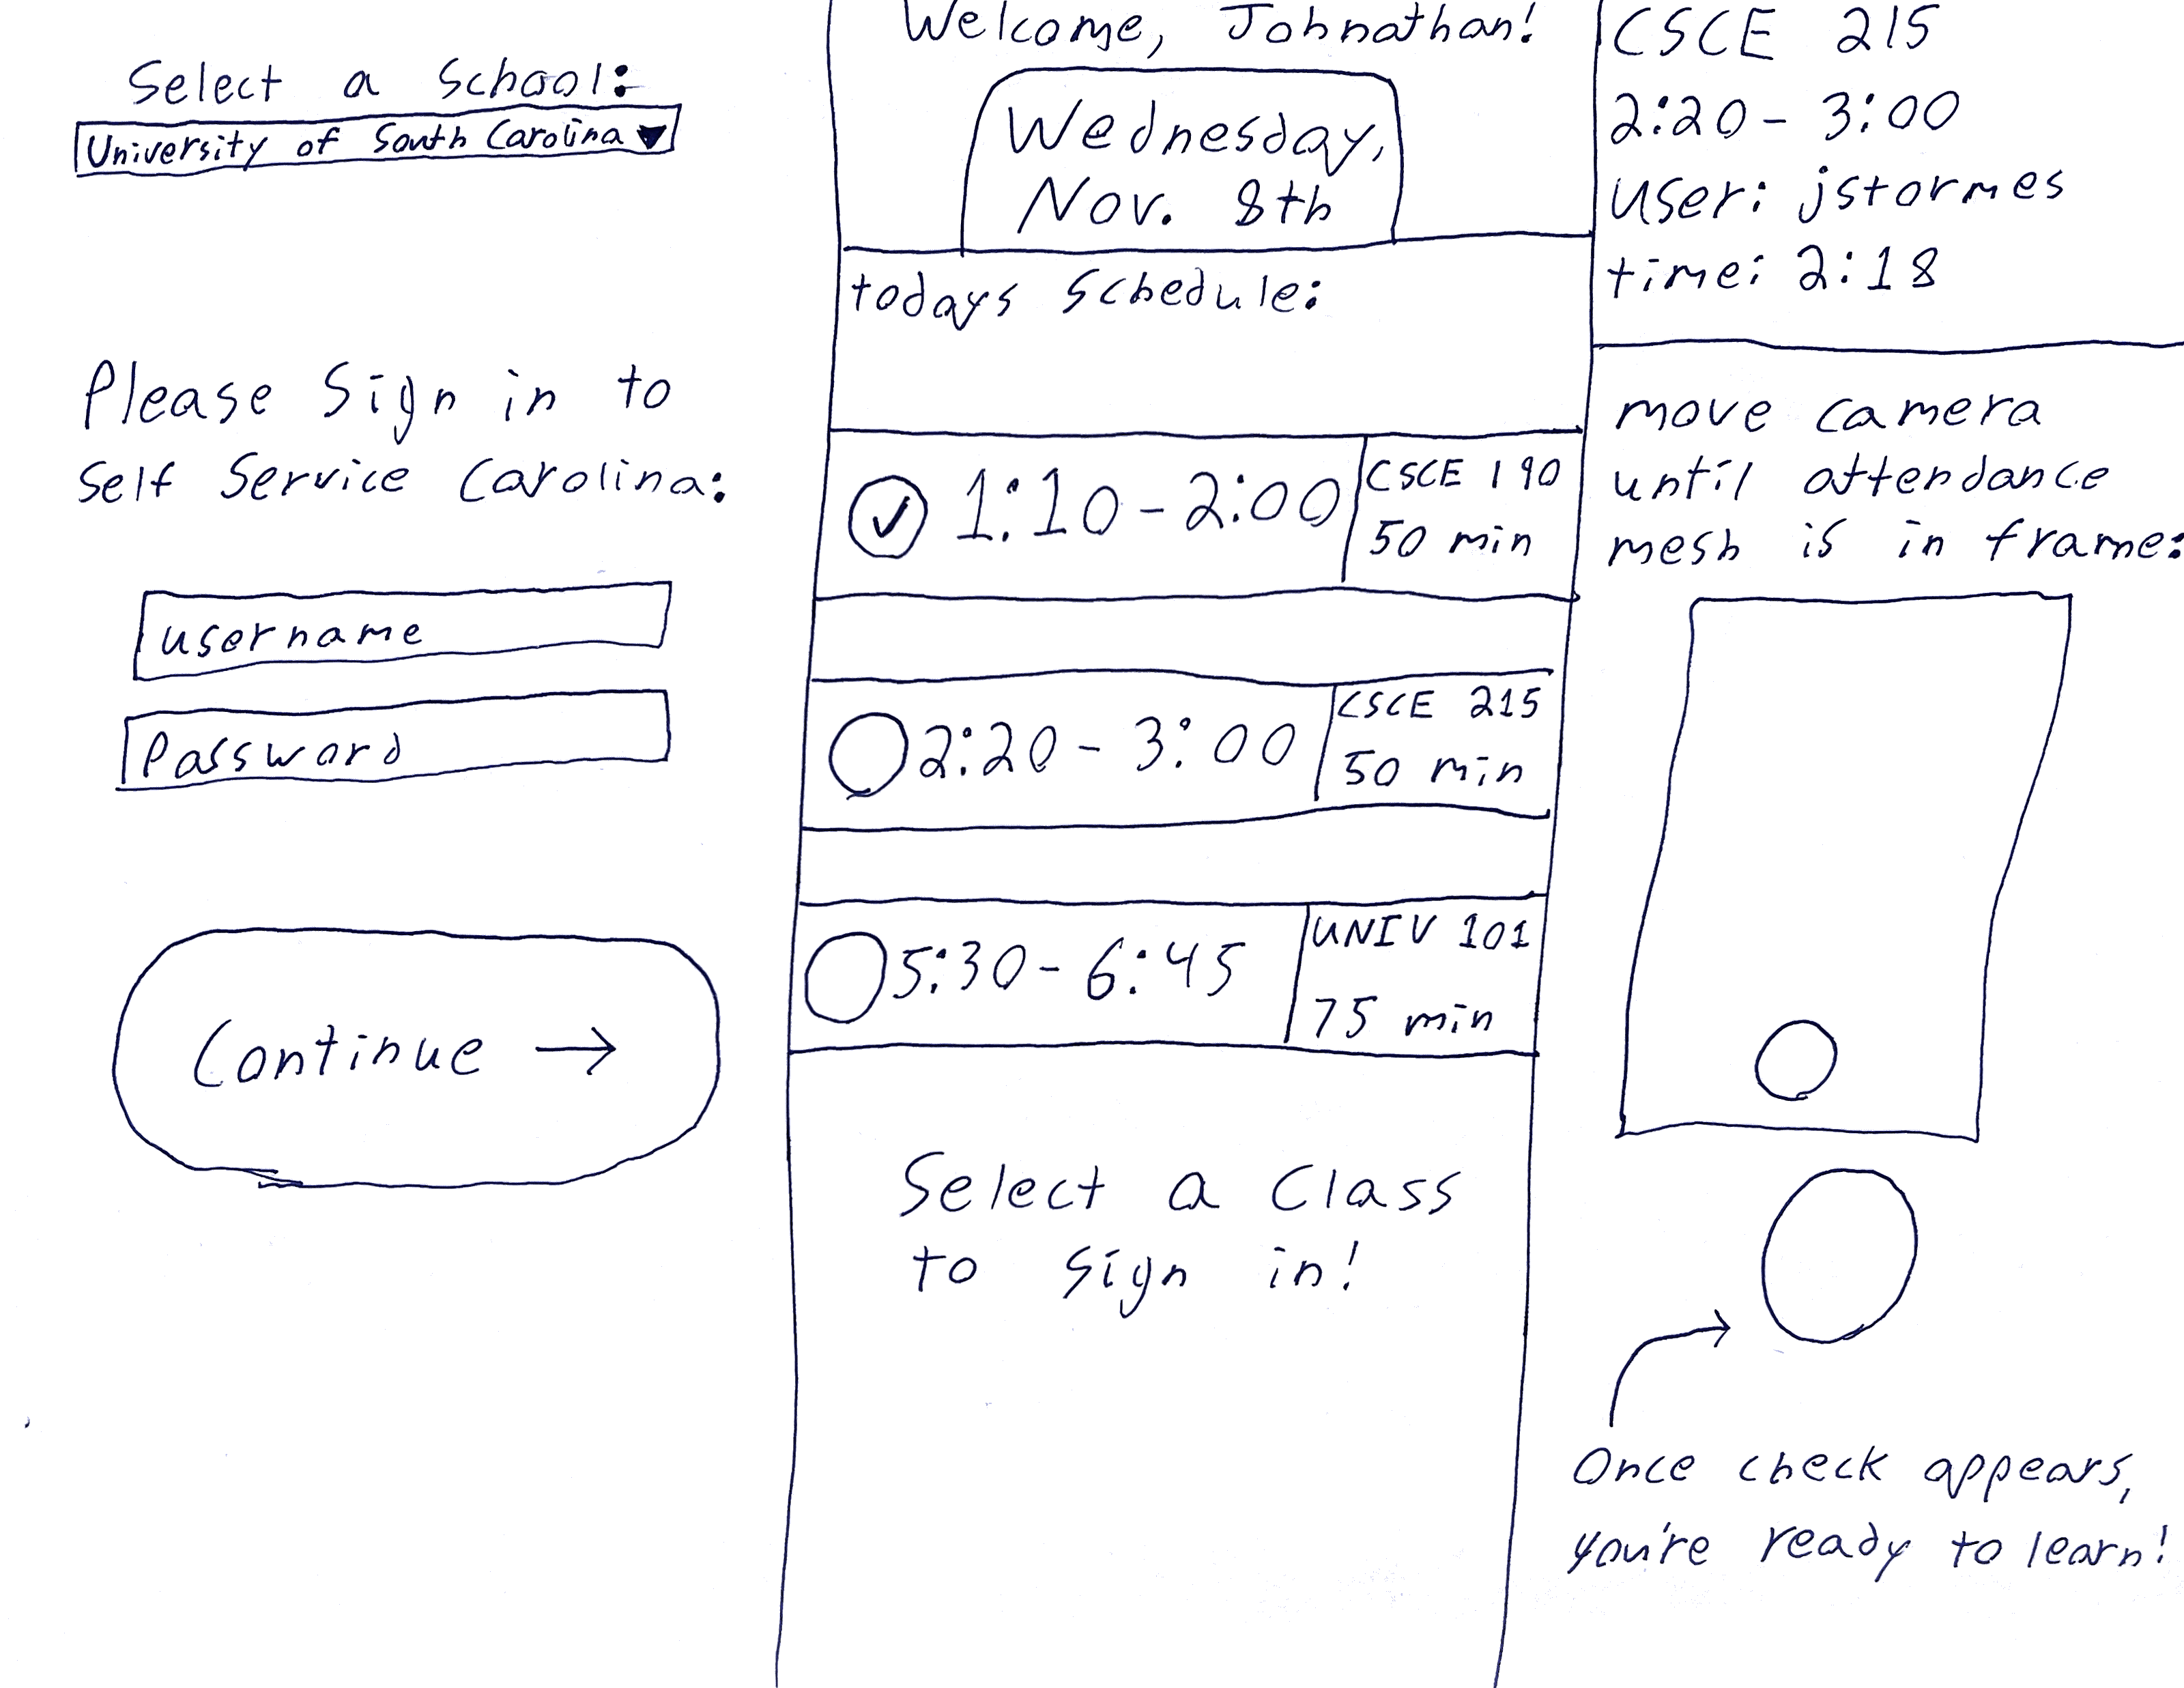 Select a School:
University of South Carolina
Please Sign in to
Self Service Carolina:
username
Password
Continue →
Welcome, Johnathan!
Wednesday,
Nov. 8th
todays Schedule:
1:10-2:00
CSCE 190
50 min
2:20-3:00
CSCE 215
50 min
5:30-6:45
UNIV 101
75 min
Select a Class
to sign in!
CSCE 215
2:20-3:00
user: jstormes
time: 2:18
move camera
until attendance
mesh is in frame:
Once check appears,
you're ready to learn!